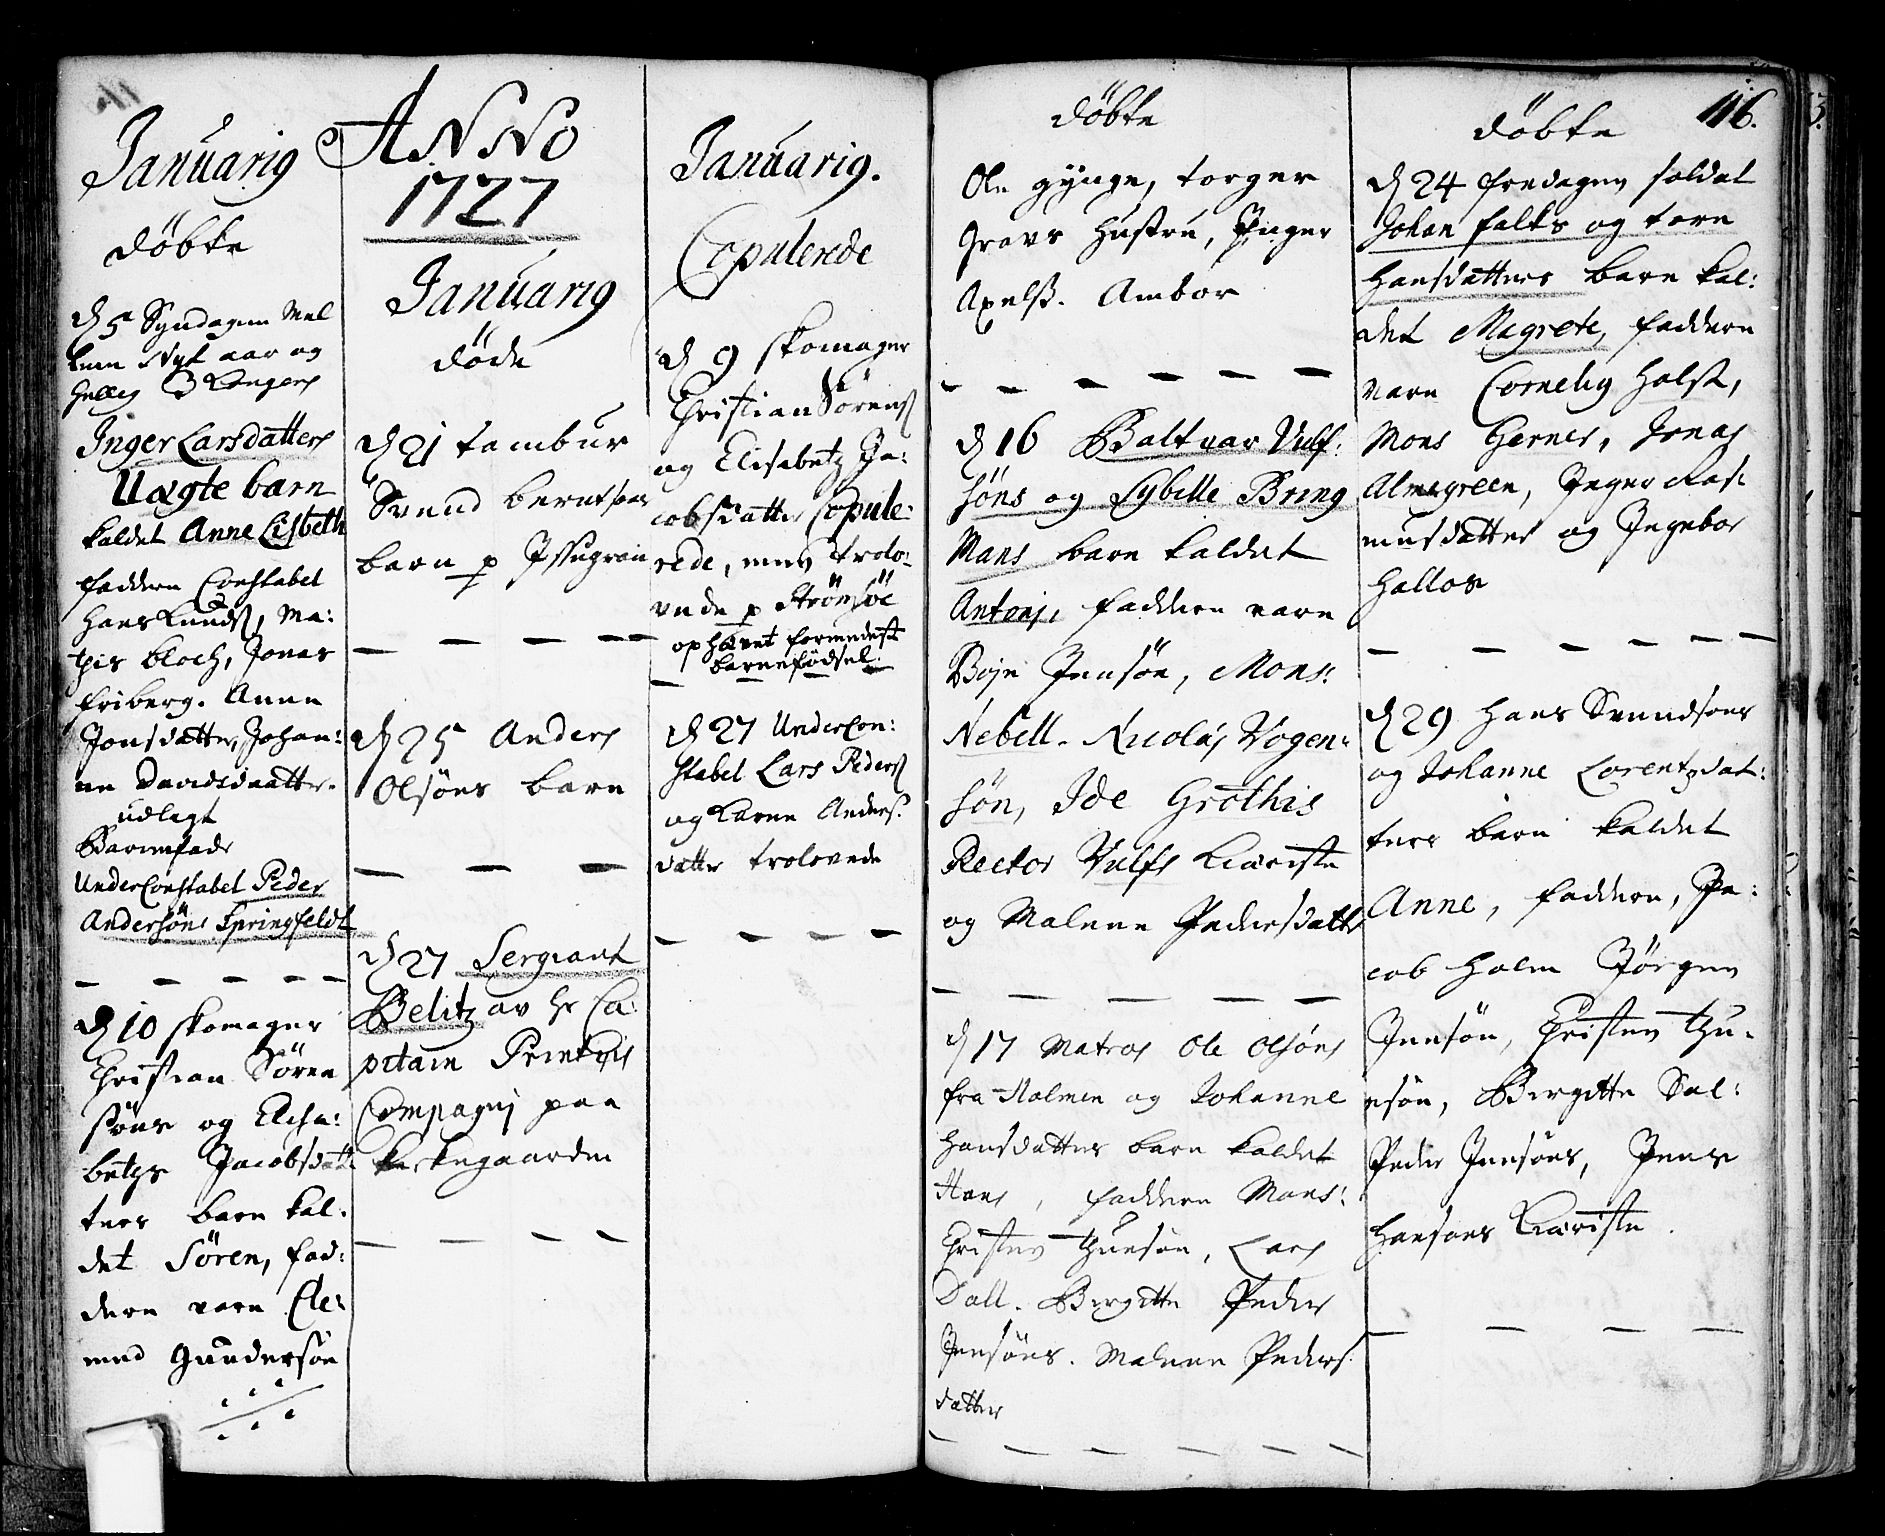 Januarig
døbte
d 5 Syndagen Mel
lem Nyt aar og
hellig 3 Kongers
Inger Larsdatters
Uægte barn
kaldet Anne Lisbeth
faddere Constabel
Hans Knuds, Ma:
this Bloch, Jonas
friberg. Anne
Jonsdatter, Johan:
ne Davidsdaatter.
udlagt
Barnefader
UnderConstabel Peder
Andersøns Springfeldt
d 10 skomager
Christian Søren
søns og Elisa:
beths Jacobsdat
ters barn kal.
det Søren, fad:
dere vare Cle:
med Gundersøn
ANNO
1727
Januarig
døde
d 21 tambur
Svend berntsens
barn p
d 25 Anders
Olsøns barn
d 27 Sergiant
Belitz av hr Ca:
pitain
Compagnj paa
kirkegaarden
Januarig.
Copulerede
d 9 skomager
Christian Sørens
og Elisabetz Ja:
cobsdatter Copule:
rede, men trolo:
vede p Strömsöe
ophævet formedelst
barnefødsel.
d 27 UnderCon:
stabel Lars Peders
og Karen Anders:
datter trolovede
døbte
Ole gynge, torger
Gravs hustru, Inger
Axels. Ambor
d 16 Baltzar Vulf:
søns og Sybille Bring
Mans barn kaldet
Antonj, faddere vare
Boje Jensøn, Mons:
Nebell. Nicolaj Vogen:
søn, Ide Grothis
Rector Vulfs Kieriste
og Malene Pedersdatter
d 17 Matros Ole Olsøns
fra Holmen og Johanne
Hansdatters barn kaldet
Hans, faddere Mons:
Christen thuesøn, Lars
Dall. Birgitte Peder
Jensøns. Malene Peders:
datter
116.
døbte
d 24 fredagen soldat
Johan falks og torn
Hansdatters barn kal:
det Magrete, faddere
vare Cornelig Holst,
Mons Gernes, Jonas
Almegreen, Inger Ras:
musdatter og Ingebor
Hallos
d 29 Hans Svendsøns
og Johanne Lorentzdat:
ters barn kaldet
Anne, faddere, Ja:
cob Holm Jørgen
Jensøn, Christen thu:
esøn, Birgitte Sal:
Peder Jensøns, Jens
Hansøns Kieriste.